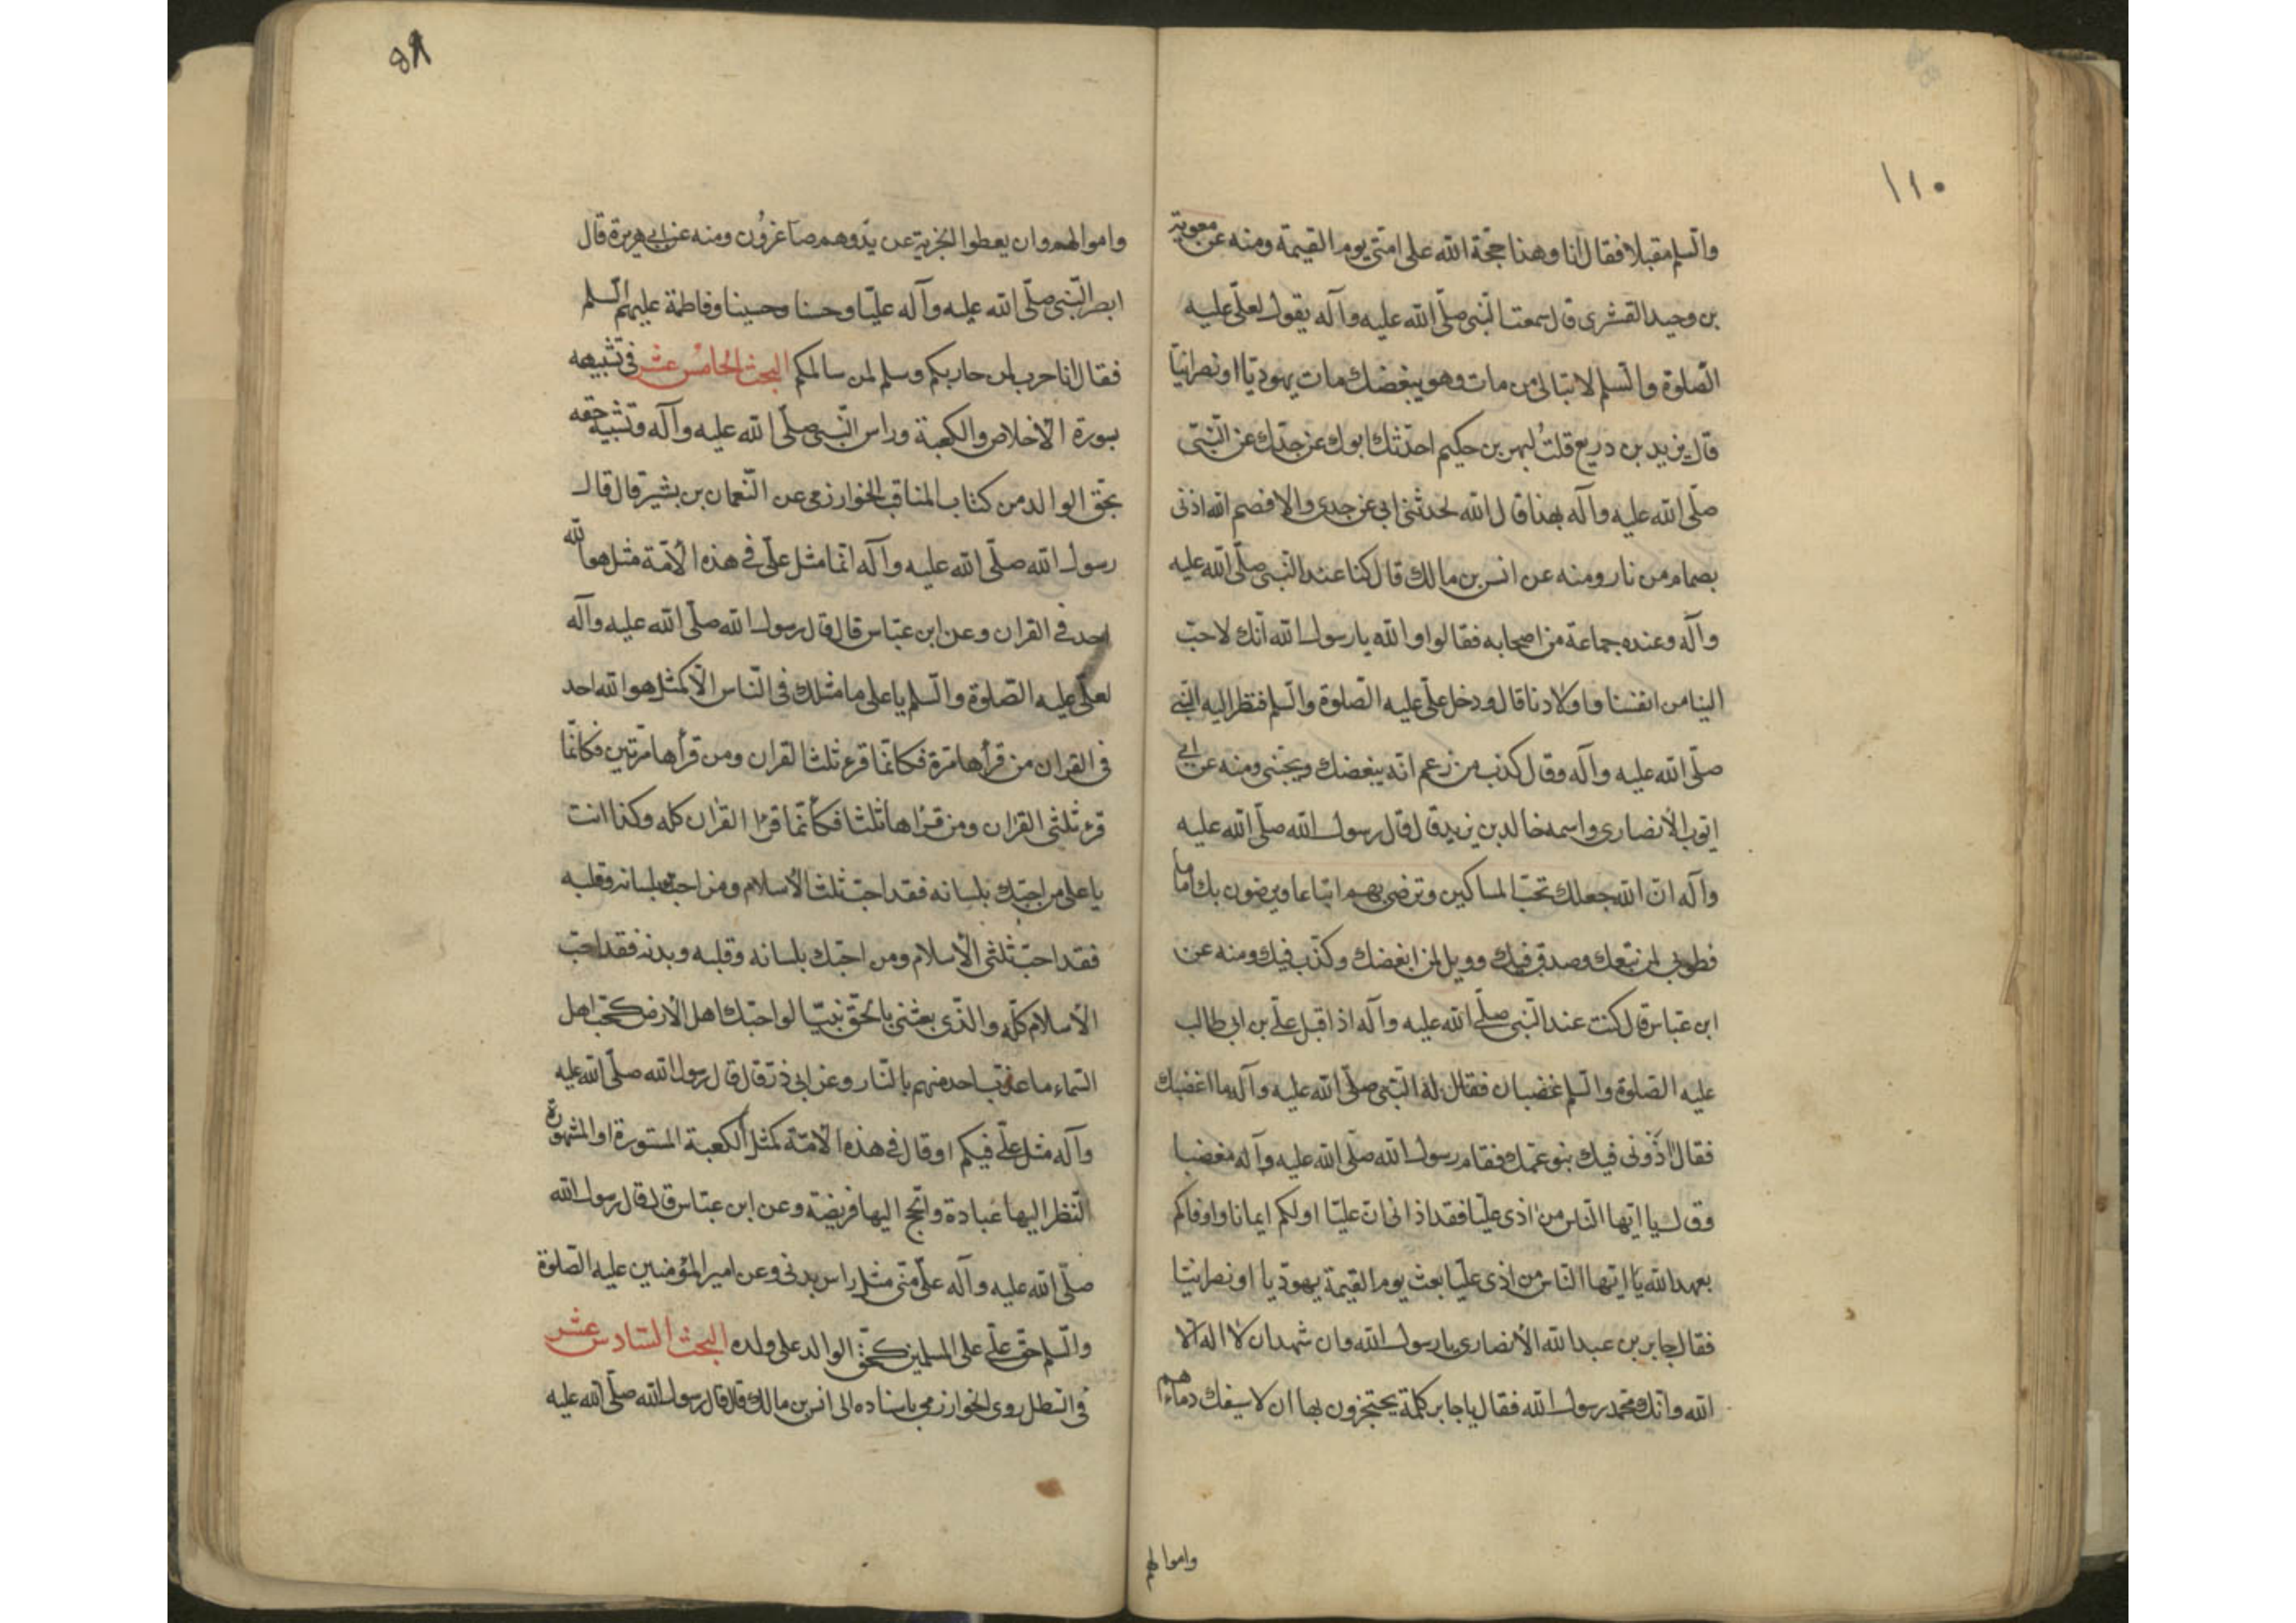 ١١٠
والسلم مقبلا فقال انا وهذا حجّة الله على امّتى يوم القيمة ومنه عن معوية
بن وحيد القشرى قال سمعت النّبى صلّى الله عليه وآله يقول لعلّى عليه
الصّلوة والسّلم لا تبالى من مات وهو يبغضك مات يهوديّا او نصرانيّا
قال يزيد بن دريع قلتُ لبهر بن حكيم احدّثك ابوك عن جدّك عن النّبىّ
صلّى الله عليه وآله بهذا قال الله لحدثنى ابى عن جدى والا فصم الله اذنى
بصمام من نار ومنه عن انس بن مالك قال كنا عند النّبى صلّى الله عليه
وآله وعنده جماعة من اصحابه فقالوا والله يا رسول الله انّك لاحبّ
الينا من انفسنا واولادنا قال ودخل علىّ عليه الصّلوة والسّلم فنظر اليه النّبى
صلّى الله عليه وآله وقال كذب من زعم انّه يبغضك ويحبّنى ومنه عن ابى
ايّوب الأنصارى واسمه خالد بن زيد قال قال رسول الله صلّى الله عليه
وآله انّ الله جعلك تحبّ المساكين وترضى بهم اتباعا ويرضون بك اماما
فطوبى لمن تبعك وصدق فيك وويل لمن ابغضك وكذّب فيك ومنه عن
ابن عبّاس قال كنت عند النّبى صلّى الله عليه وآله اذ اقبل علىّ بن ابى طالب
عليه الصّلوة والسّلم غضبان فقال له النّبى صلّى الله عليه وآله ما اغضبك
فقال اذونى فيك بنو عمّك فقام رسول الله صلّى الله عليه وآله مغضبا
وقال يا ايّها النّاس من اذى عليّا فقد اذانى انّ عليّا اولكم ايمانا واوفاكم
بعهد الله يا ايّها النّاس من اذى عليّا بعث يوم القيمة يهوديا او نصرانيّا
فقال جابر بن عبد الله الأنصارى يا رسول الله وان شهد ان لا اله الا
الله وانّك محمّد رسول الله فقال يا جابر كلمة يحتجزون بها ان لا سيفك دماءهم
واموالهم
٥٨
واموالهم وان يعطوا الجزية عن يدٍ وهم صاغرُون ومنه عن ابى هريرة قال
ابصر النّبى صلّى الله عليه وآله عليّا وحسنا وحسينا وفاطمة عليهم السّلم
فقال انا حرب لمن حاربكم وسلم لمن سالمكم البحث الخامس عشر فى تشبيهه
بسورة الأخلاص والكعبة وراس النّبى صلّى الله عليه وآله وتشبيه حقه
بحق الوالد من كتاب المناقب للخوارزمى عن النّعمان بن بشير قال قال
رسول الله صلّى الله عليه وآله انّما مثل علىّ فى هذه الأمّة مثل هو الله
احد فى القران وعن ابن عبّاس قال قال رسول الله صلّى الله عليه وآله
لعلّى عليه الصّلوة والسّلم يا على ما مثلك فى النّاس الّا كمثل هو الله احد
فى القران من قرأها مرّة فكانّما قرء ثلث القران ومن قرأها مرّتين فكانّما
قرء ثلثى القران ومن قرأها ثلثا فكأنّما قرأ القرآن كله وكذا انت
يا على من احبّك بلسانه فقد احبّ ثلث الأسلام ومن احبّك بلسانه وقلبه
فقد احبّ ثلثى الأسلام ومن احبّك بلسانه وقلبه وبدنه فقد احبّ
الأسلام كلّه والّذى بعثنى بالحقّ نبيّا لو احبّك اهل الأرض كحبّ اهل
السّماء ما عذّب احد منهم بالنّار وعن ابى ذرّ قال قال رسول الله صلّى الله عليه
وآله مثل علىّ فيكم او قال فى هذه الأمّة كمثل الكعبة المستورة او المشهورة
النّظر اليها عبادة والحّج اليها فريضة وعن ابن عبّاس قال قال رسول الله
صلّى الله عليه وآله علىّ منّى مثل راس بدنى وعن امير المؤمنين عليه الصّلوة
والسّلم حقّ علىّ على المسلمين كحقّ الوالد على ولده البحث السّادس عشر
فى السّطل روى الخوارزمى باسناده الى انس بن مالك قال قال رسول الله صلّى الله عليه